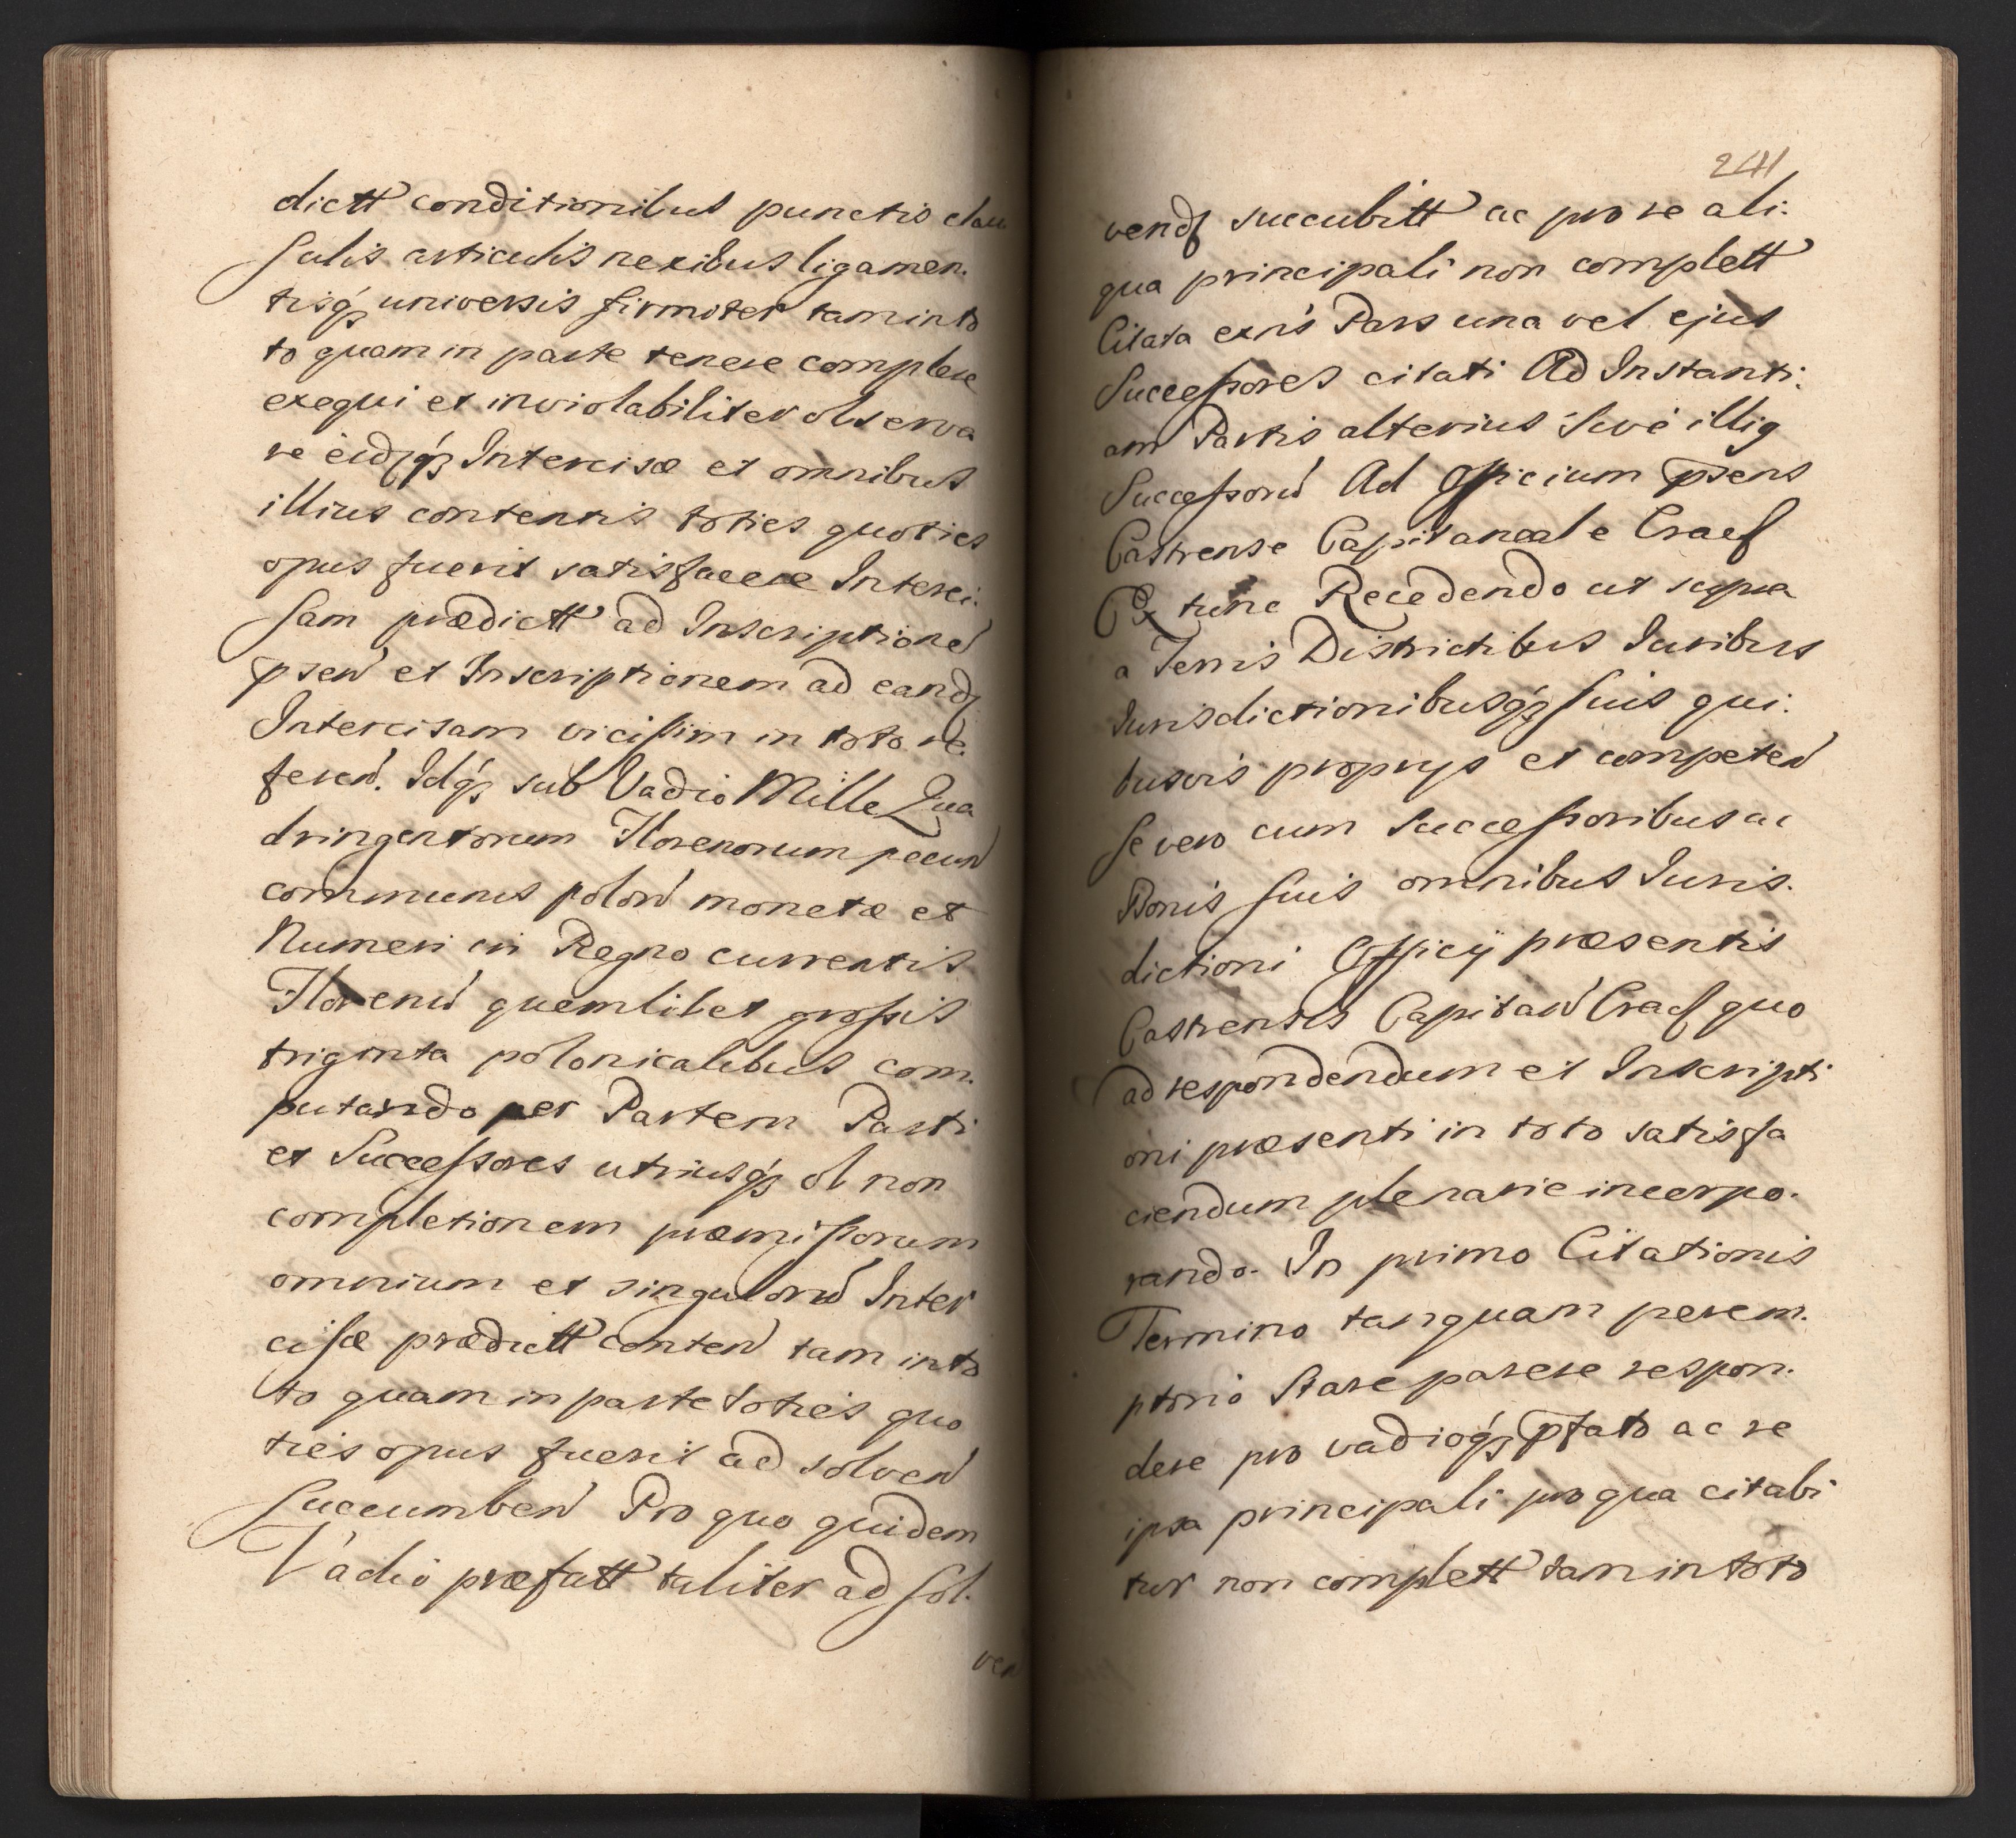 dictt conditionibus punctis clau
sulis articulis nexibus ligamen.
tisq́ʒ universis firmiter tam in to
to quam in parte tenere complere
exequi et inviolabiliter observa
re eidʒq́ʒ Intercisæ et omnibus
illius contentis toties quoties
opus fuerit satisfacere Interci.
sam prædictt ad Inscriptione͂
p͞sen͂ et Inscriptionem ad eandʒ
Intercisam vicissim in toto re.
feren͂. Idq́ʒ sub Vadio Mille Qua
dringentorum Florenorum pecun͂
communis polon͂ monetæ et
Numeri in Regno currentis
Florenu͂ quemlibet grossis
triginta polonicalibus com.
putando per Partem Parti
et Successores utriusq́ʒ ob non
completionem præmissorum
omnium et singuloru͂ Inter
cisæ prædictt conten͂ tam in to
to quam in parte toties quo
ties opus fuerit ad solven͂
succumben͂ Pro quo quidem
Vadio præfatt taliter ad sol.
ven
241
vendʒ succubitt ac pro re ali.
qua principali non complett
Citata exn͂s Pars una vel ejus
Successores citati Ad Instanti.
am Partis alterius Sive illiq
Successoru͂ Ad Officium p͞sens
Castrense Capitaneale Cracʃ
Ex tunc Recedendo ut supra
a Terris Districtibus Iuribus
Iurisdictionibusq́ʒ suis qui.
busvis proprys et competen͂
se vero cum Successoribus ac
Bonis suis omnibus Iuris.
dictioni Officÿ præsentis
Castrensis Capitan͂ Cracʃ quo
ad respondendum et Inscripti
oni præsenti in toto satisfa
ciendum plenarie incorpo.
rando. In primo Citationis
Termino tanquam perem.
ptorio Stare parere respon.
dere pro vadioq́ʒ p͞fato ac re
ipsa principali pro qua citabi
tur non complett tam in toto